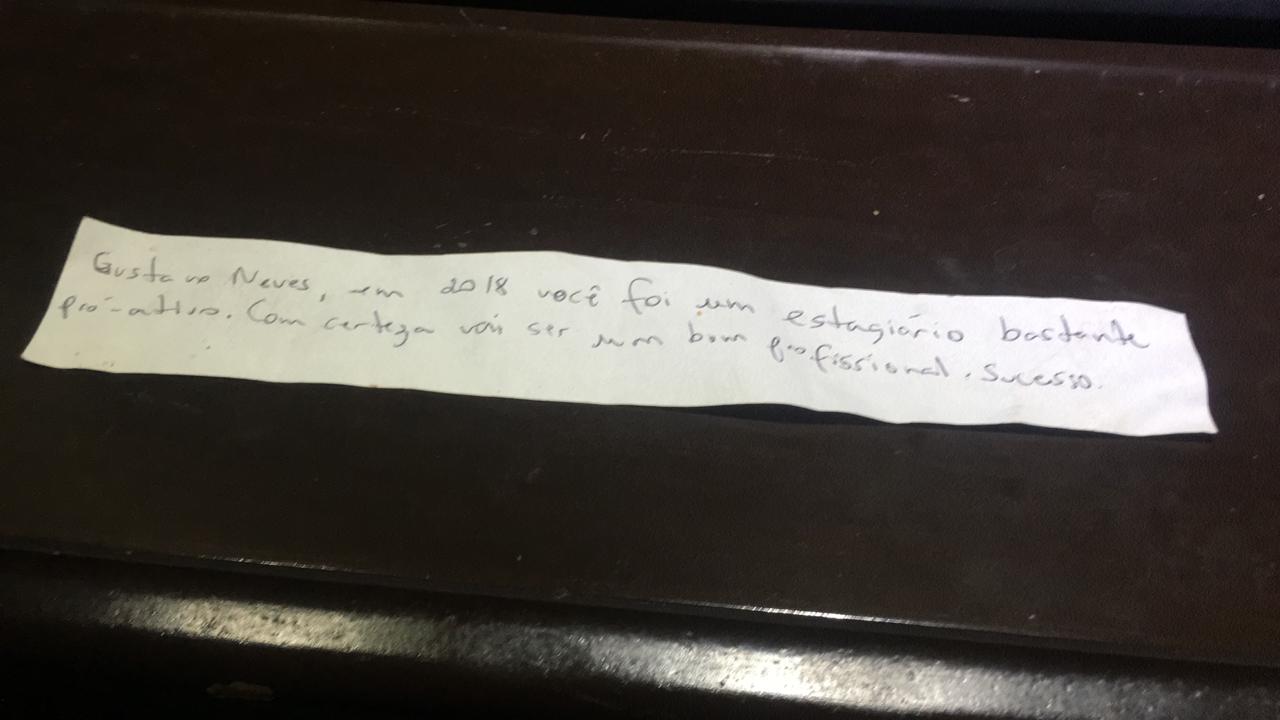 Gustavo Neves, em 2018 você foi um estagiário bastante
pró-ativo. Com certeza vai ser um bom profissional. Sucesso.